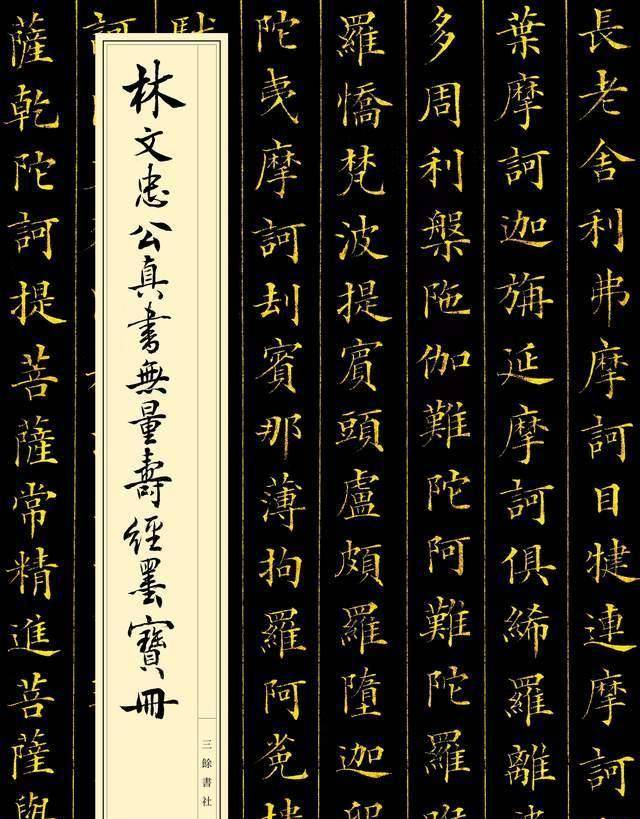 長老舍利弗摩訶目犍連摩訶
葉摩訶迦旃延摩訶俱絺羅離
多周利槃陁伽難陀阿難陀羅
羅憍梵波提賓頭盧頗羅墮迦
陀夷摩訶刦賓那薄拘羅阿㝹
林文忠公真書無量壽經墨寶冊
三餘書社
薩乾陀訶提菩薩常精進菩薩與